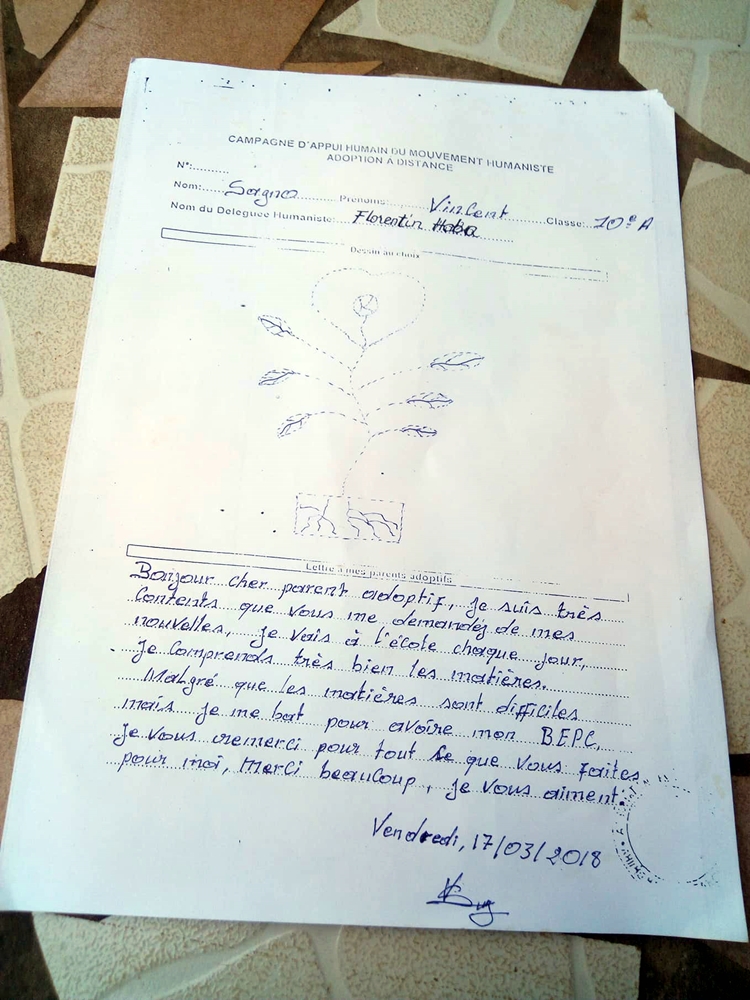 CAMPAGNE D'APPUI HUMAIN DU MOUVEMENT HUMANISTE
ADOPTION A DISTANCE
N°:..........
Nom:......Sagno..........Prenoms:......Vincent..........Classe:..10e A
Nom du Deleguee Humaniste:....Florentin Haba..........
Dessin au choix
Lettre à mes parents adoptifs
Bonjour cher parent adoptif, je suis très
Contents que vous me demandéz de mes
nouvelles, je vais à l'école chaque jour,
je comprends très bien les matières.
Malgré que les matières sont difficiles
mais je me bat pour avoire mon BEPC,
je vous remerci pour tout ce que vous faites
pour moi, Merci beaucoup, je vous aiment.
Vendredi, 17/03/2018